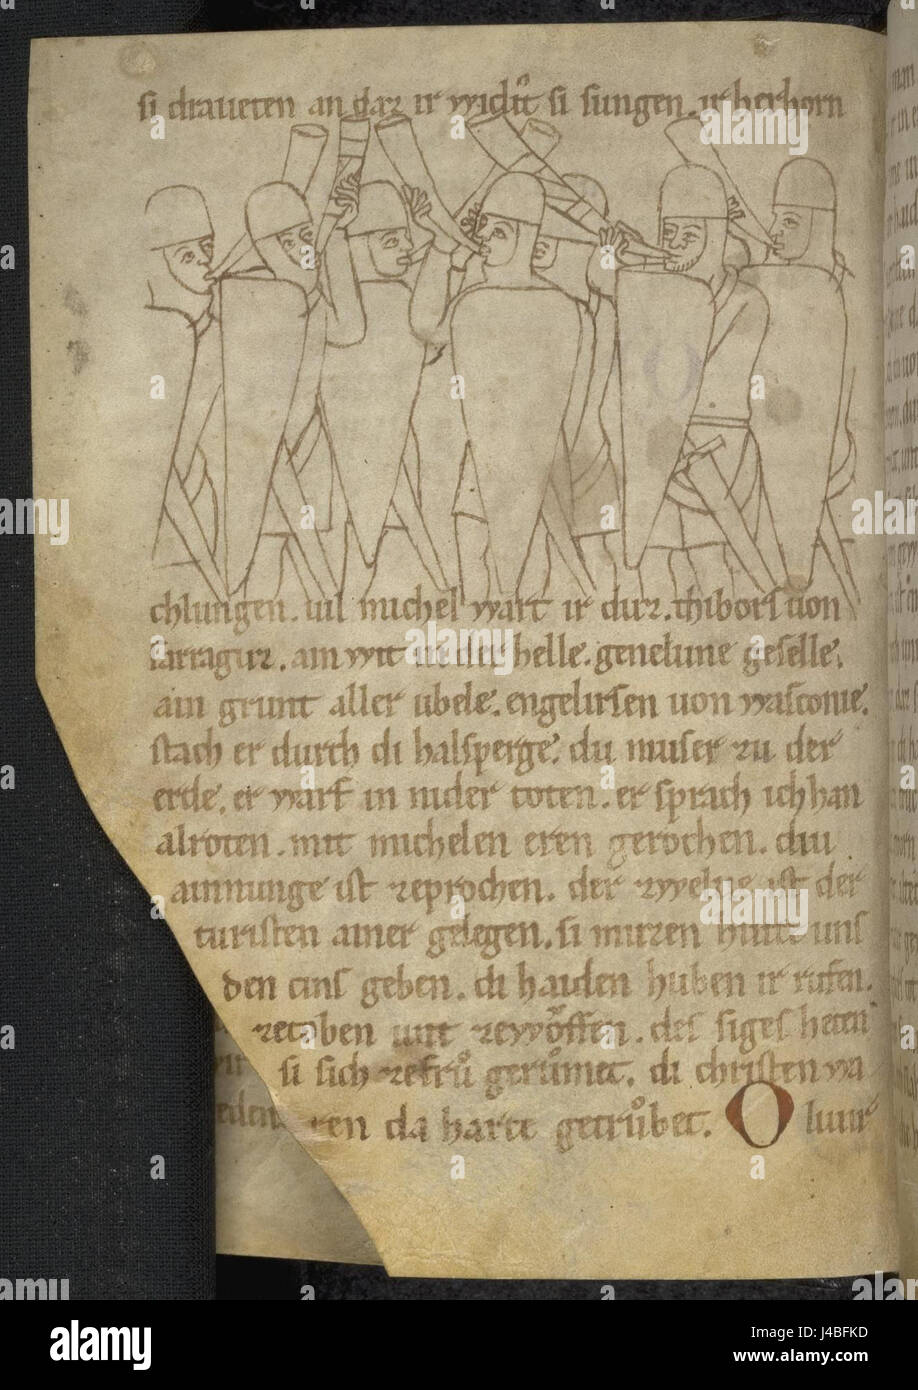 si draueten an daz ir widił si sungen. ir herhorn
chlungen. uil michel wart ir duz. thibors uon
sarraguz. ain wit der helle. genelune geselle.
ain grunt aller ubele. engelirsen uon wasconie.
stach er durch di halsperge. du muser zu der
erde. er warf in nider toten. er sprach ich han
alroten. mit michelen eren gerochen. diu
ainnunge ist zeprochen. der zwelue ist der
turisten ainer gelegen. si muzen hiute uns
den cins geben. di haiden huben ir rufen.
uñ zewoͤffen. des siges heten
si sich zefruͦ geruͦmet. di christen wa
ren da harte getruͦbet. Oliuir
alamy
a
a
alamy stock photo
J4BFKD
www.alamy.com